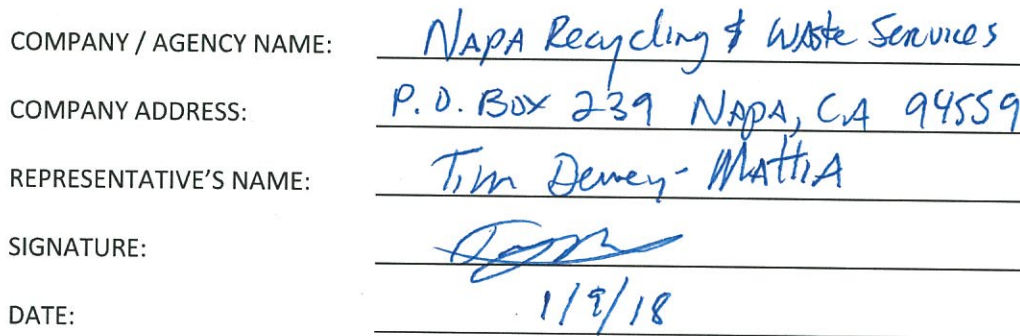 COMPANY / AGENCY NAME: NAPA Recycling & Waste Services
COMPANY ADDRESS: P.O. Box 239 NAPA, CA 94559
REPRESENTATIVE'S NAME: Tim Dewey-MATTIA
SIGNATURE:
DATE: 1/9/18